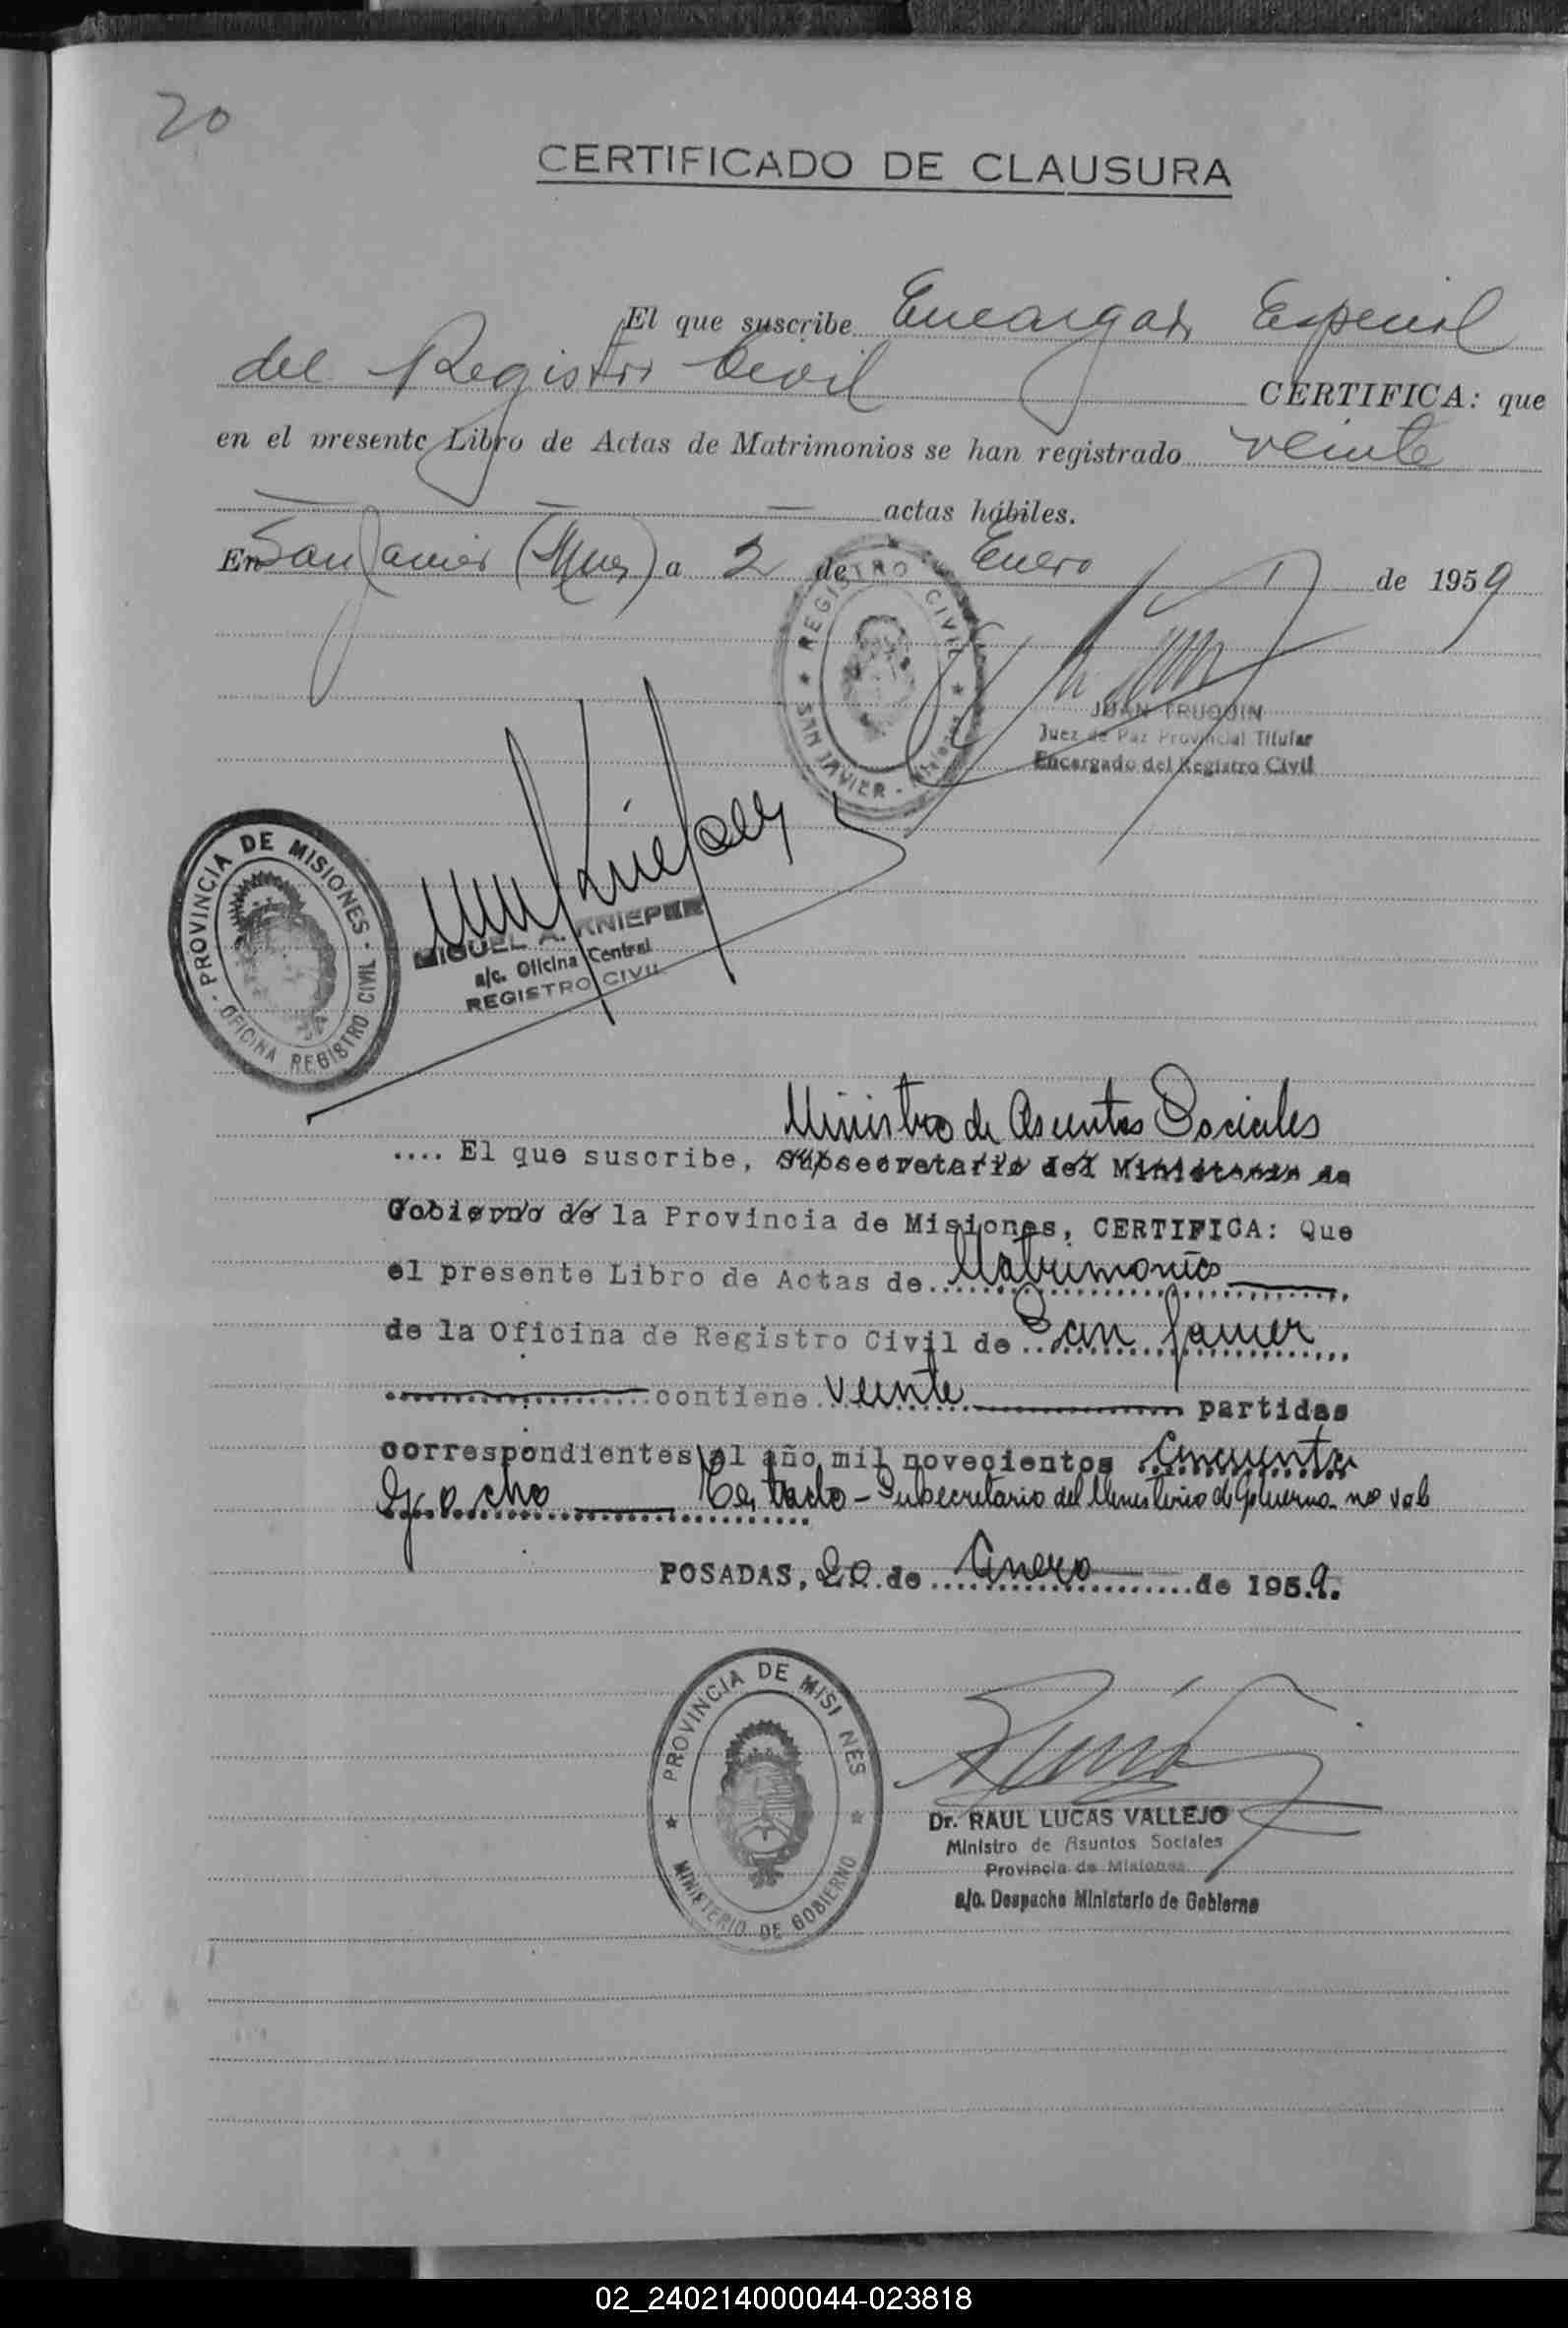 20
CERTIFICADO DE CLAUSURA
El que suscribe Encargado Especial
del Registro Civil CERTIFICA: que
en el presente Libro de Actas de Matrimonios se han registrado veinte
actas hábiles.
En San Javier (Mnes) a 2 de Enero de 1959
REGISTRO CIVIL
SAN JAVIER - Misiones
JUAN TRUQUIN
Juez de Paz Provincial Titular
Encargado del Registro Civil
PROVINCIA DE MISIONES - OFICINA REGISTRO CIVIL -
MIGUEL A. KNIEPER
a/c. Oficina Central
REGISTRO CIVIL
Ministro de Asuntos Sociales
.... El que suscribe, Subsecretario del Ministerio de
Gobierno de la Provincia de Misiones, CERTIFICA: Que
el presente Libro de Actas de Matrimonios
de la Oficina de Registro Civil de San Javier
contiene veinte partidas
correspondientes al año mil novecientos cincuenta
y ocho Testado - Subsecretario del Ministerio de Gobierno - no vale
POSADAS, 20 de Enero de 1959.
PROVINCIA DE MISI NES
MINISTERIO DE GOBIERNO
Dr. RAUL LUCAS VALLEJO
Ministro de Asuntos Sociales
Provincia de Misiones
a/c. Despacho Ministerio de Gobierno
X
Y
Z
02_240214000044-023818